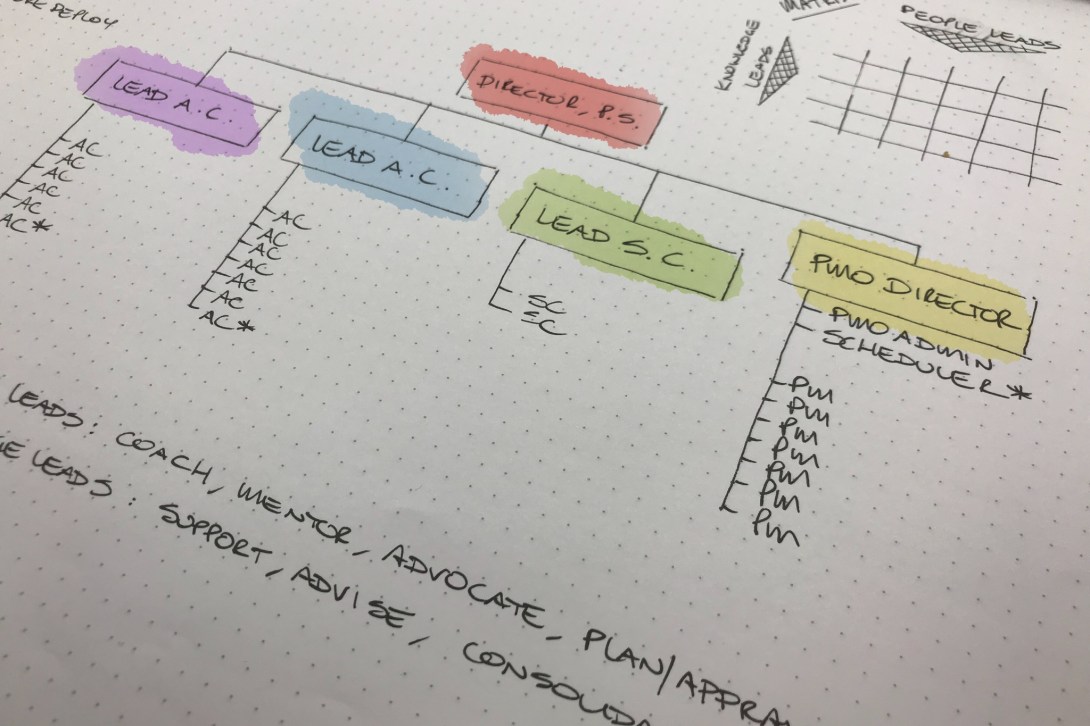 DEPLOY
MATRIX
PEOPLE LEADS
KNOWLEDGE
LEADS
DIRECTOR, P.S.
LEAD A.C.
AC
AC
AC
AC
AC
AC*
LEAD A.C.
AC
AC
AC
AC
AC
AC
AC*
LEAD S.C.
SC
SC
PMO DIRECTOR
PMO ADMIN
SCHEDULER*
PM
PM
PM
PM
PM
PM
PM
LEADS: COACH, MENTOR, ADVOCATE, PLAN/APPRA
GE LEADS: SUPPORT, ADVISE, CONSOLIDA